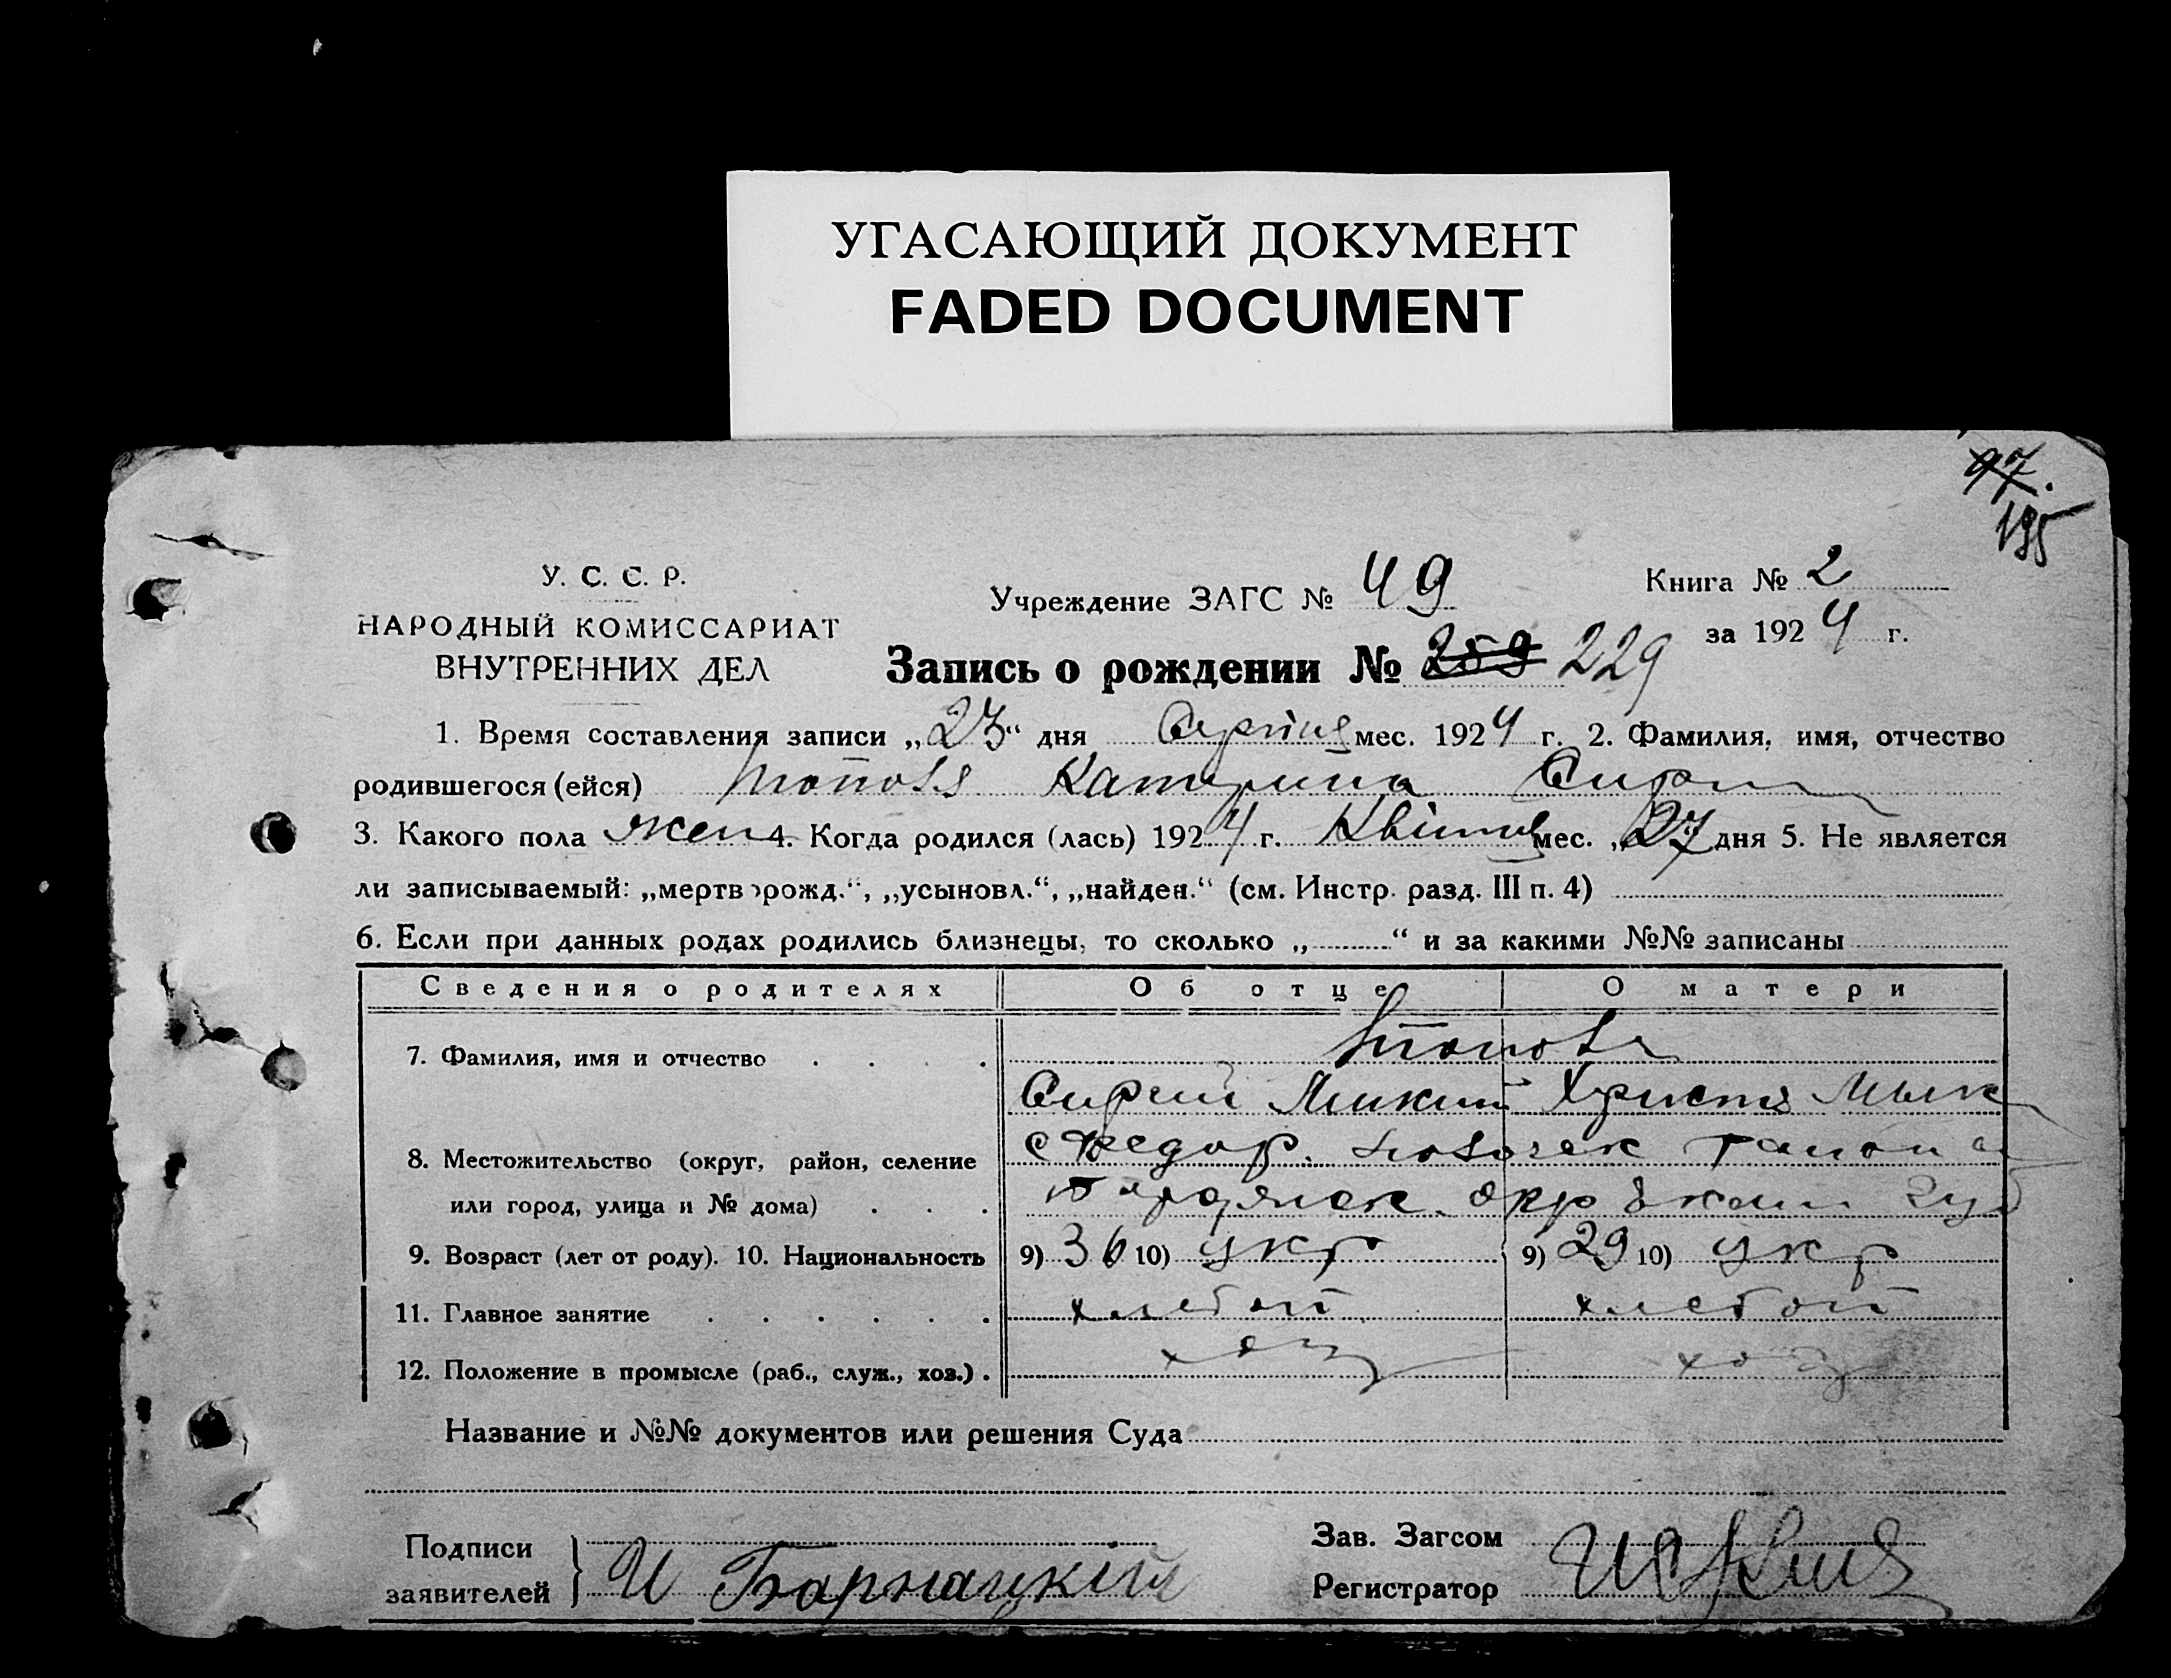 УГАСАЮЩИЙ ДОКУМЕНТ
FADED DOCUMENT
97.
195
У. С. С. Р.
НАРОДНЫЙ КОМИССАРИАТ
ВНУТРЕННИХ ДЕЛ
Учреждение ЗАГС № 49
Книга № 2
за 1924 г.
Запись о рождении № 259 229
1. Время составления записи „23“ дня Серпня мес. 1924 г. 2. Фамилия, имя, отчество
родившегося (ейся) Катерина
3. Какого пола жен 4. Когда родился (лась) 1924 г. Квітня мес. „27 дня 5. Не является
ли записываемый: „мертворожд.“, „усыновл.“, „найден.“ (см. Инстр. разд. III п. 4)
6. Если при данных родах родились близнецы, то сколько „ “ и за какими №№ записаны
Сведения о родителях Об отце О матери
7. Фамилия, имя и отчество
Христя
8. Местожительство (округ, район, селение с Федор.
или город, улица и № дома) окр Екат губ
9. Возраст (лет от роду). 10. Национальность 9) 36 10) укр 9) 29 10) укр
11. Главное занятие хлебоп хлебоп
12. Положение в промысле (раб., служ., хоз.) хоз хоз
Название и №№ документов или решения Суда
Подписи
заявителей И Барнацкій
Зав. Загсом
Регистратор